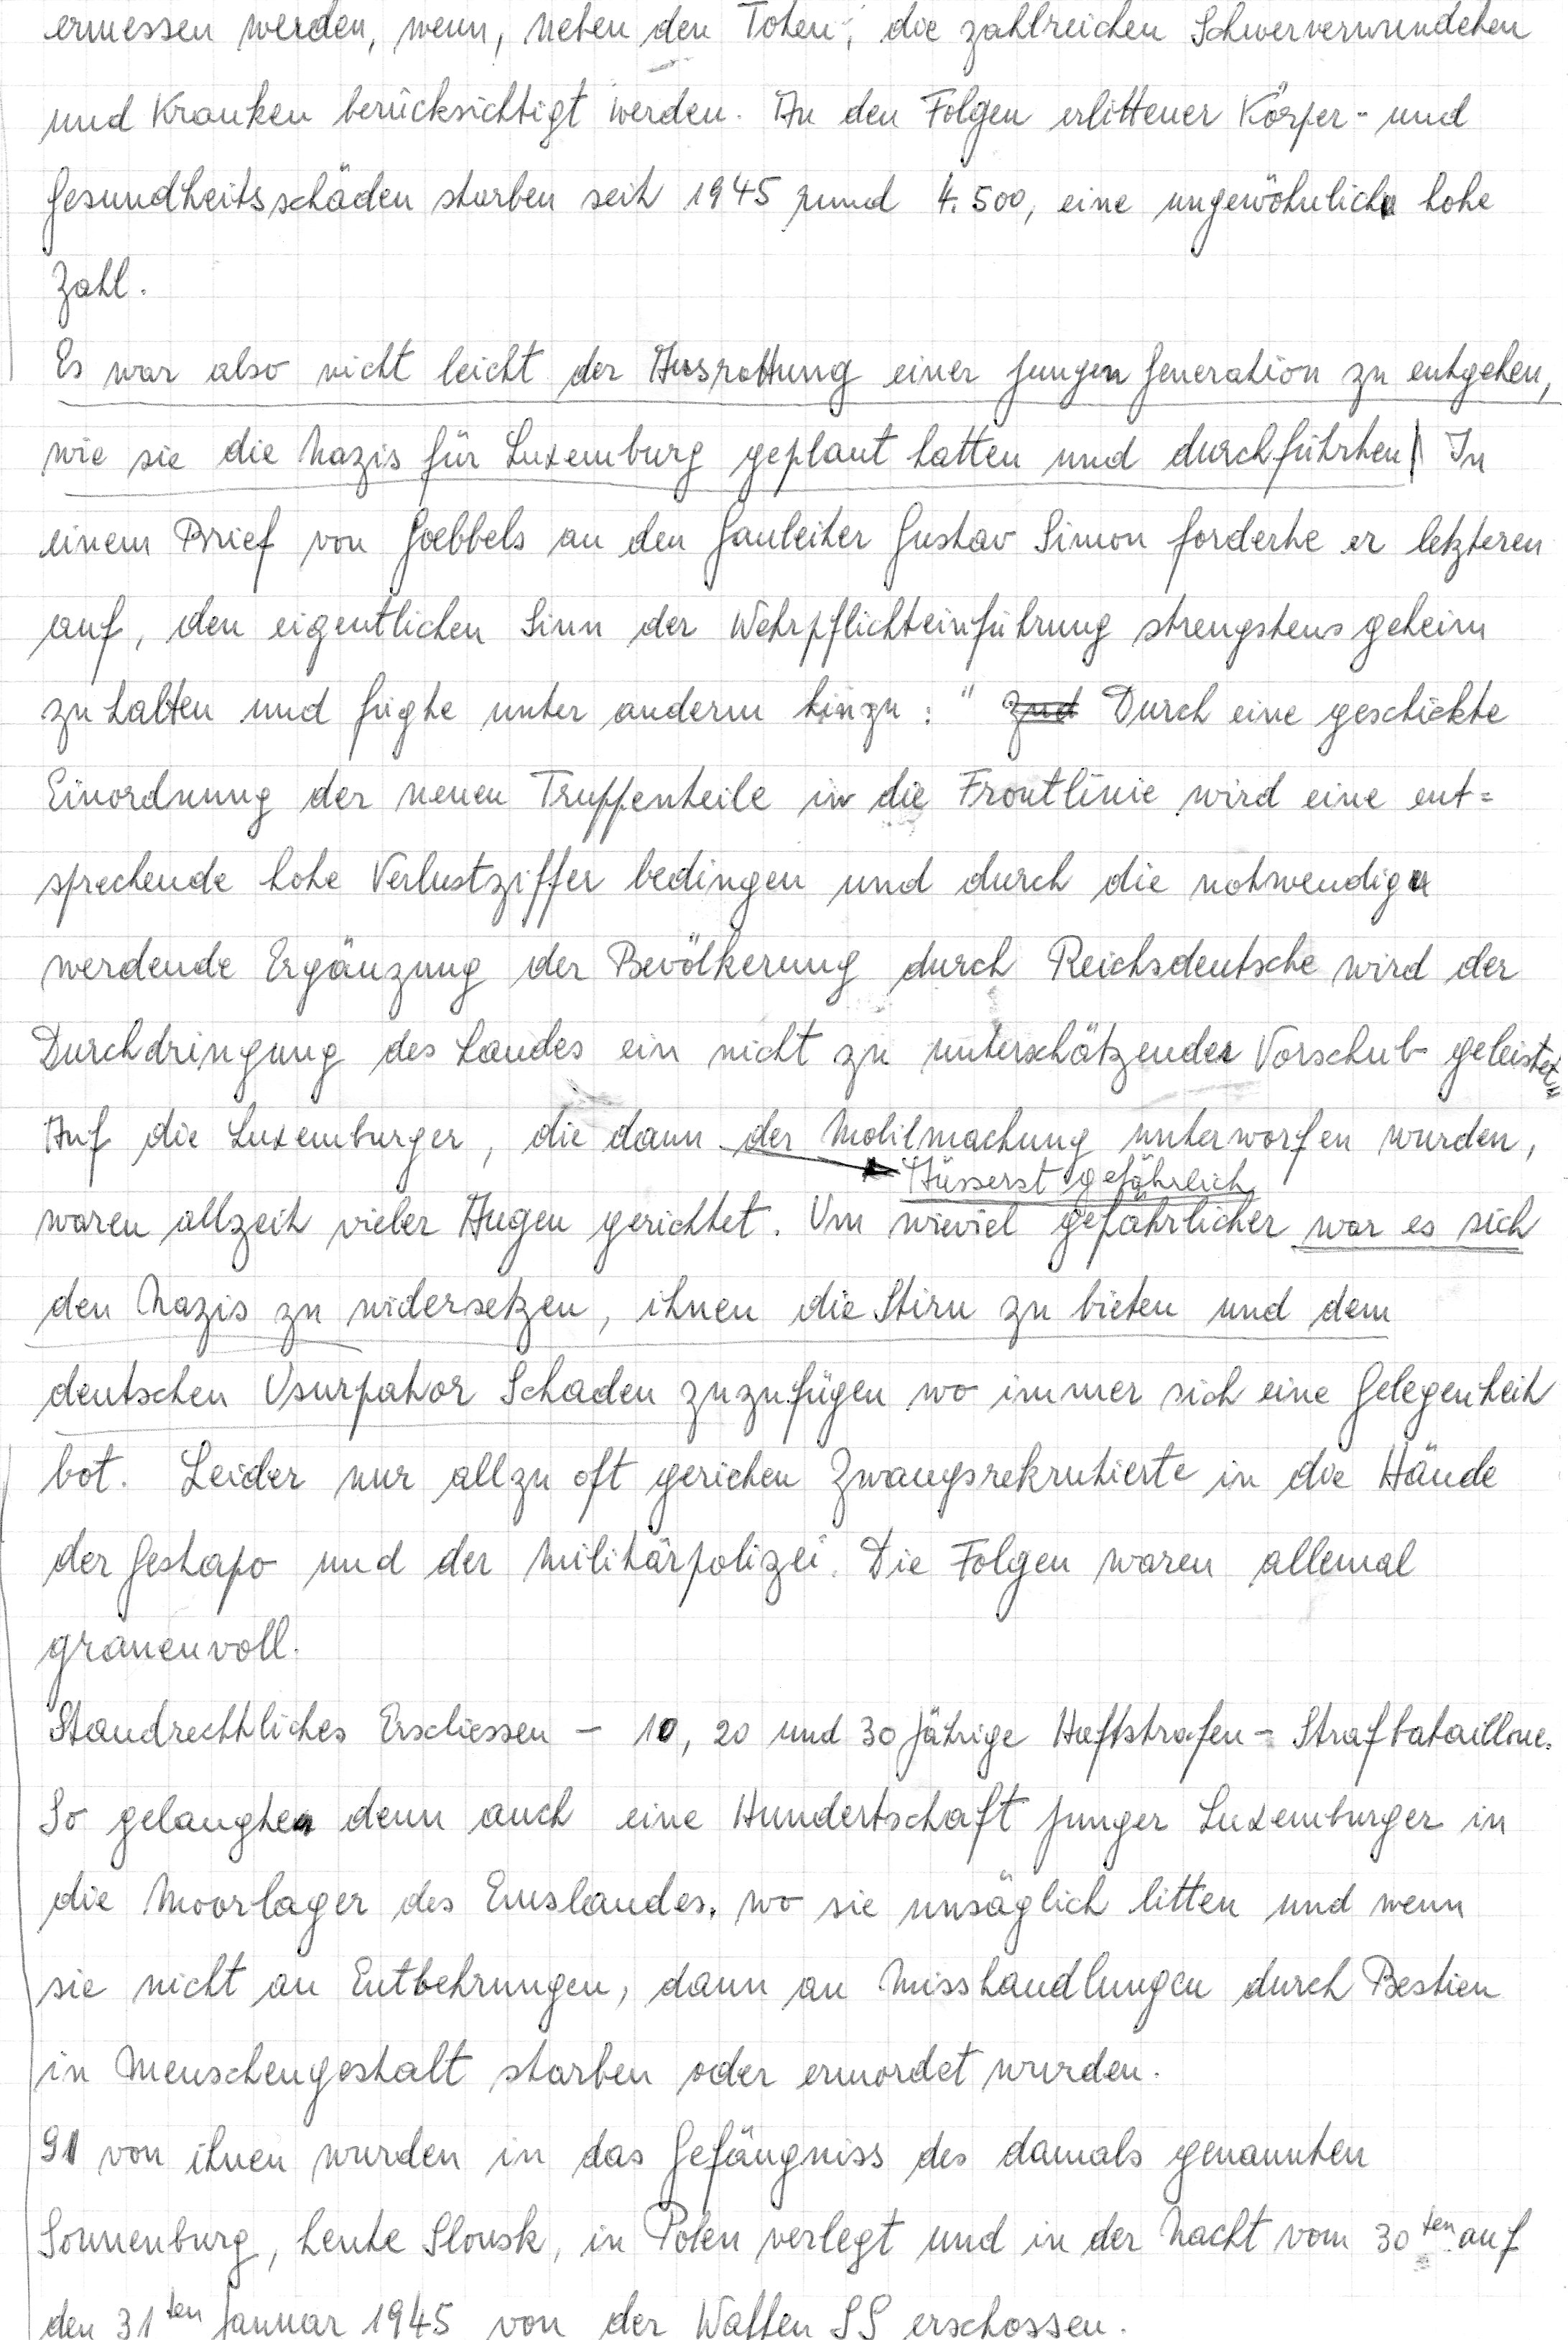 ermessen werden, wenn, neben den Toten, die zahlreichen Schwerverwundeten
und Kranken berücksichtigt werden. An den Folgen erlittener Körper- und
Gesundheitsschäden starben seit 1945 rund 4.500, eine ungewöhnlich hohe
Zahl.
Es war also nicht leicht der Ausrottung einer jungen Generation zu entgehen,
wie sie die Nazis für Luxemburg geplant hatten und durchführten. In
einem Brief von Goebbels an den Gauleiter Gustav Simon forderte er letzteren
auf, den eigentlichen Sinn der Wehrpflichteinführung strengstens geheim
zu halten und fügte unter anderm hinzu: " Durch eine geschickte
Einordnung der neuen Truppenteile in die Frontlinie wird eine ent=
sprechende hohe Verlustziffer bedingen und durch die notwendig
werdende Ergänzung der Bevölkerung durch Reichsdeutsche wird der
Durchdringung des Landes ein nicht zu unterschätzender Vorschub geleistet"
Auf die Luxemburger, die dann der Mobilmachung unterworfen wurden,
Äusserst gefährlich
waren allzeit vieler Augen gerichtet. Um wieviel gefährlicher war es sich
den Nazis zu widersetzen, ihnen die Stirn zu bieten und dem
deutschen Usurpator Schaden zuzufügen wo immer sich eine Gelegenheit
bot. Leider nur allzu oft gerieten Zwangsrekrutierte in die Hände
der Gestapo und der Militärpolizei. Die Folgen waren allemal
grauenvoll.
Standrechtliches Erschiessen – 10, 20 und 30 jährige Haftstrafen – Strafbataillone.
So gelangten denn auch eine Hundertschaft junger Luxemburger in
die Moorlager des Emslandes, wo sie unsäglich litten und wenn
sie nicht an Entbehrungen, dann an Misshandlungen durch Bestien
in Menschengestalt starben oder ermordet wurden.
91 von ihnen wurden in das Gefängniss des damals genannten
Sonnenburg, heute Slonsk, in Polen verlegt und in der Nacht vom 30ten auf
den 31ten Januar 1945 von der Waffen SS erschossen.